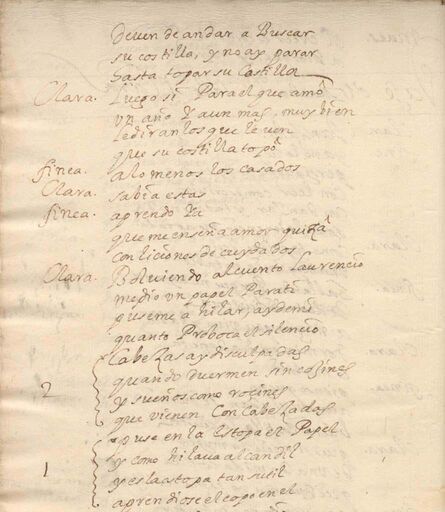 deven de andar a Buscar
su costilla, y no ay parar
hasta topar su Costilla
Clara. Luego si Para el que amo
un año y aun mas, muy bien
le diran los que le ven
que su costilla topo
finea. a lo menos los casados
Clara. sabia estas
finea. aprendo ya
que me enseña amor quiza
con liciones de cuydados
Clara. Bolviendo al cuento Laurencio
me dio un papel Para ti
puseme a hilar, ay de mi
quanto Proboca el silencio
2 cabezas ay disculpadas
quando duermen sin cojines
y sueños como rocines
que vienen con cabezadas
puse en la estopa el Papel
1 y como hilava al candil
y es la estopa tan sutil
aprendiose el copo en el